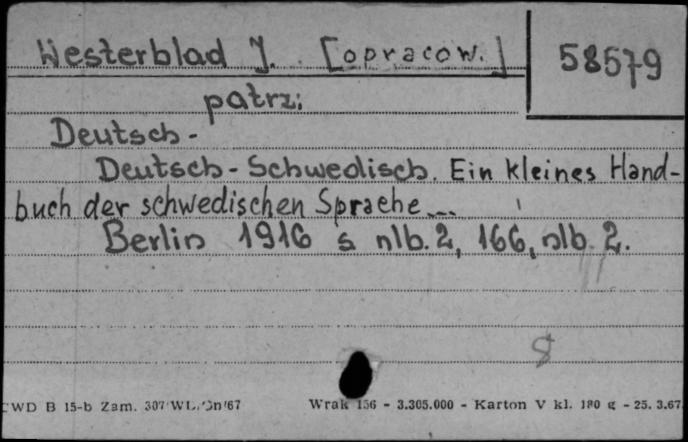 Westerblad J. [opracow.]
58579
patrz:
Deutsch -
Deutsch - Schwedisch. Ein kleines Hand-
buch der schwedischen Sprache...
Berlin 1916 s nlb. 2, 166, nlb. 2.
8
CWD B 15-b Zam. 307 WL. 67
Wrak 156 - 3.305.000 - Karton V kl. 180 g - 25. 3.67.